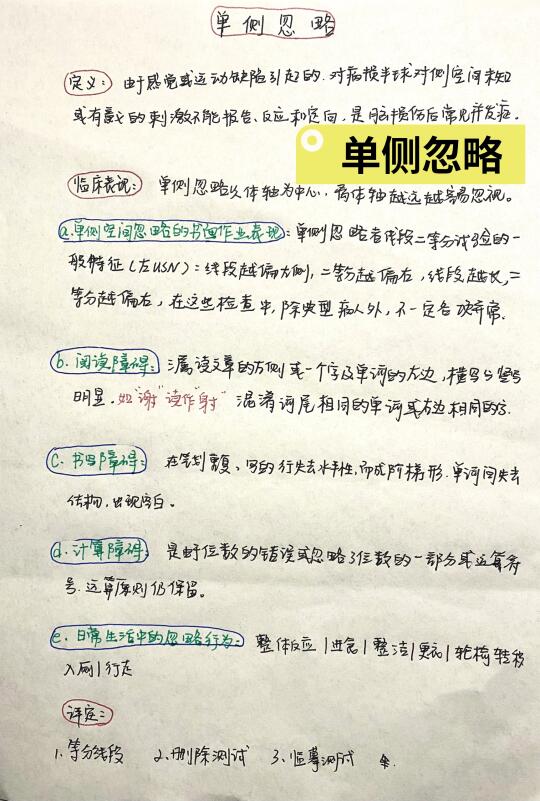 单侧忽略
定义：由于感觉或运动缺陷引起的.对病损半球对侧空间未知
或有意义的刺激不能报告、反应和定向，是脑损伤后常见并发症.
单侧忽略
临床表现：单侧忽略以体轴为中心，离体轴越远越容易忽视。
a.单侧空间忽略的书面作业表现：单侧忽略者线段二等分试验的一
般特征（左USN）：线段越偏左侧，二等分越偏右，线段越长，二
等分越偏右，在这些检查中，除典型病人外，不一定各项异常.
b.阅读障碍：漏读文章的左侧或一个字及单词的左边，横写比竖写
明显.如“谢”读作“射” 混淆词尾相同的单词或右边相同的字.
C.书写障碍：在笔划重复、写的行失去水平性，而成阶梯形.单词间失去
结构，出现空白。
d.计算障碍：是由于位数的错误或忽略了位数的一部分或运算符
号.运算原则仍保留。
e.日常生活中的忽略行为：整体反应|进食|整洁|更衣|轮椅转移
入厕|行走
评定：
1、等分线段 2、删除测试 3、临摹测试